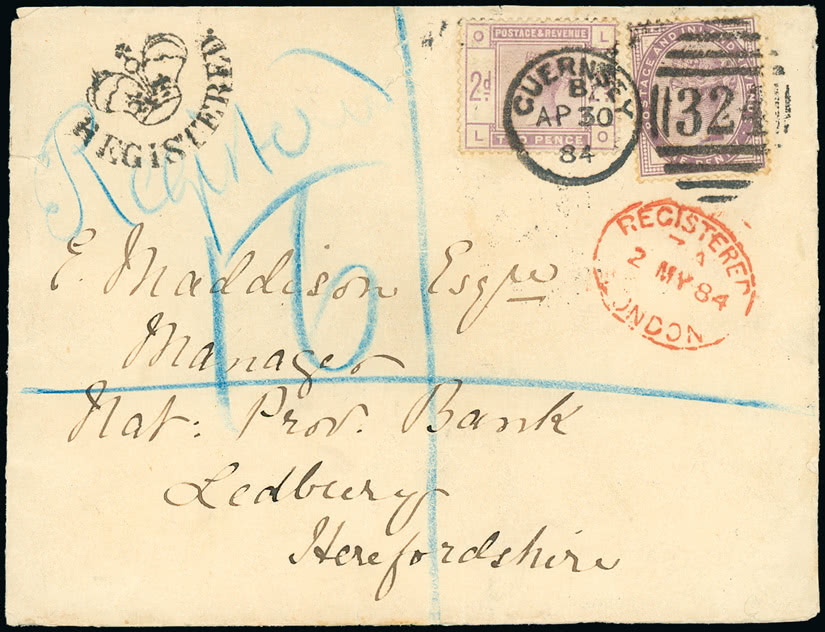 REGISTERED.
POSTAGE & REVENUE
O L
2d
L O
TWO PENCE
GUERNSEY
B
AP 30
84
POSTAGE AND INLAND REVENUE
324
REGISTERED
2 MY 84
LONDON
E. Maddison Esqre
Manager
Nat: Prov. Bank
Ledbury
Herefordshire